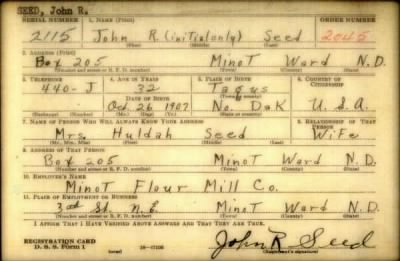 SEED, John R.
SERIAL NUMBER 1. NAME (Print) ORDER NUMBER
2115 John R. (initial only) Seed 2045
(First) (Middle) (Last)
2. ADDRESS (Print)
Box 205 Minot Ward N.D.
(Number and street or R. F. D. number) (Town) (County) (State)
3. TELEPHONE 4. AGE IN YEARS 5. PLACE OF BIRTH 6. COUNTRY OF CITIZENSHIP
440-J 32 Tagus
DATE OF BIRTH
Oct. 26 1907 No. Dak U.S.A.
(Exchange) (Number) (Mo.) (Day) (Yr.) (State or country)
7. NAME OF PERSON WHO WILL ALWAYS KNOW YOUR ADDRESS 8. RELATIONSHIP OF THAT PERSON
Mrs. Huldah Seed Wife
(Mr., Mrs., Miss) (First) (Middle) (Last)
9. ADDRESS OF THAT PERSON
Box 205 Minot Ward N.D.
(Number and street or R. F. D. number) (Town) (County) (State)
10. EMPLOYER'S NAME
Minot Flour Mill Co.
11. PLACE OF EMPLOYMENT OR BUSINESS
3rd St. N.E. Minot Ward N.D.
(Number and street or R. F. D. number) (Town) (County) (State)
I AFFIRM THAT I HAVE VERIFIED ABOVE ANSWERS AND THAT THEY ARE TRUE.
REGISTRATION CARD
D. S. S. Form 1 (over) 16-17105
John R Seed
(Registrant's signature)